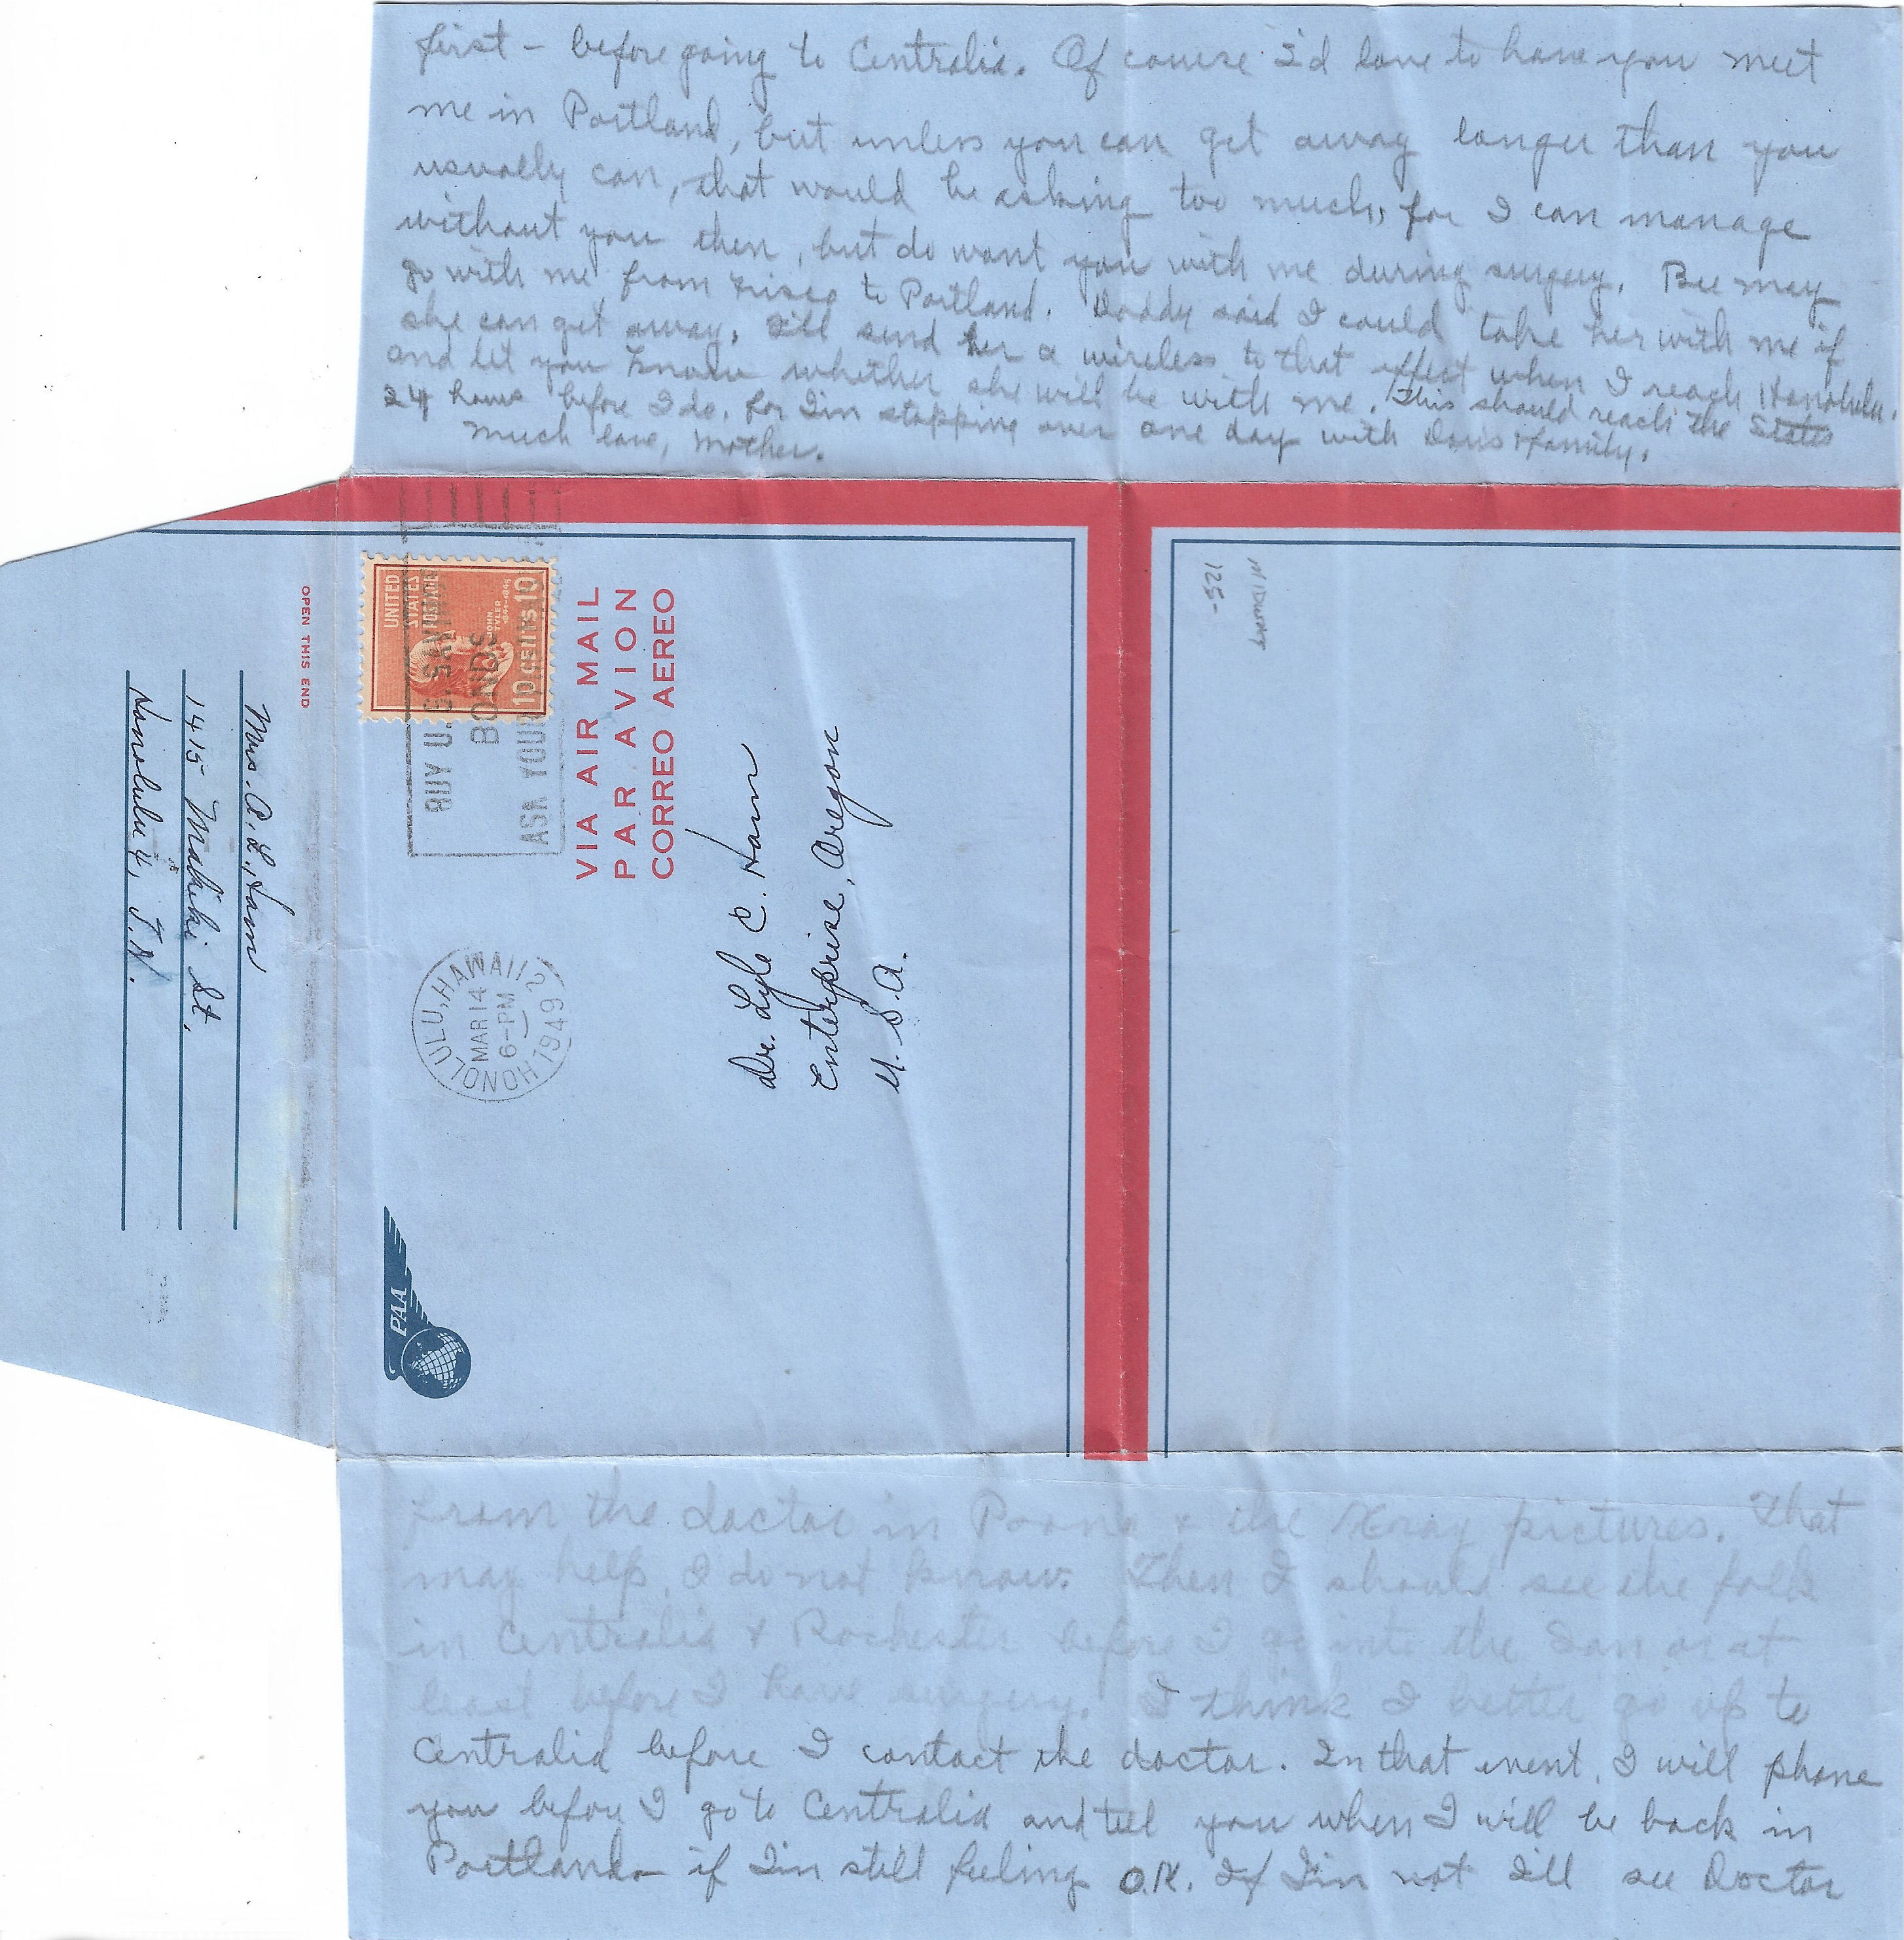 first – before going to Centralia. Of course I'd love to have you meet
me in Portland, but unless you can get away longer than you
usually can, that would be asking too much, for I can manage
without you then, but do want you with me during surgery. Bee may
go with me from Frisco to Portland. Daddy said I could take her with me if
she can get away. I'll send her a wireless to that effect when I reach Honolulu
and let you know whether she will be with me. This should reach the States
24 hours before I do, for I'm stopping over one day with Doris & family.
Much love, Mother.
OPEN THIS END
Mrs. A. L. Ham
1415 Makiki St.
Honolulu 4, T.H.
UNITED
STATES
POSTAGE
JOHN
TYLER
1841-1845
10 CENTS 10
BUY U.S. SAVINGS
BONDS
ASK YOUR
VIA AIR MAIL
PAR AVION
CORREO AEREO
HONOLULU, HAWAII 2
MAR 14
6-PM
1949
Dr. Lyle C. Ham
Enterprise, Oregon
U.S.A.
PAA
125-
from the doctor in Poona & the Xray pictures. That
may help, I do not know. Then I should see the folk
in Centralia & Rochester before I go into the San or at
least before I have surgery. I think I better go up to
Centralia before I contact the doctor. In that event, I will phone
you before I go to Centralia and tell you when I will be back in
Portland – if I'm still feeling O.K. If I'm not I'll see Doctor